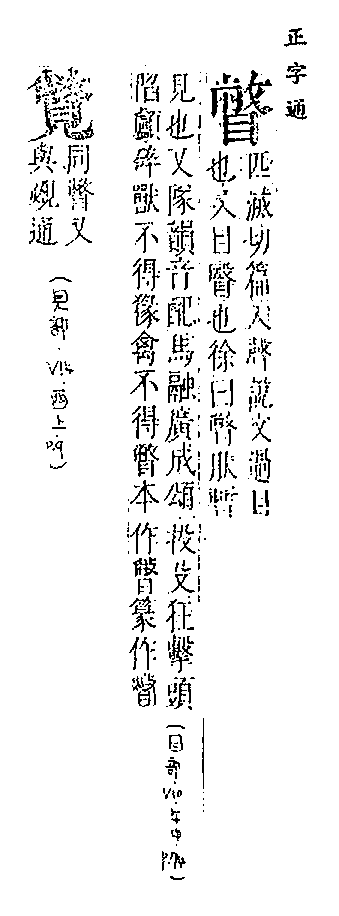 正字通
瞥
匹滅切篇入聲說文過目
也又目瞖也徐曰瞥然暫
見也又隊韻音配馬融廣成頌投殳狂擊頭
陷顱碎獸不得猭禽不得瞥本作𥌮篆作瞥
(目部．V10．午中．P74)
覽
同瞥又
與覕通
(見部．V14．酉上．P.9)